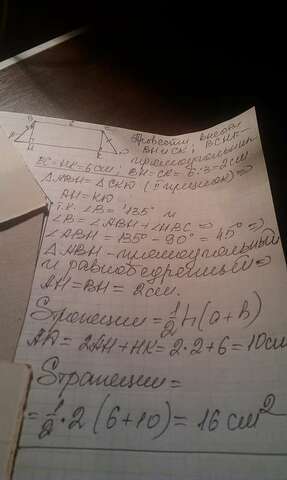 Провести высоты
BH и CK; BCKH-
прямоугольник
BC=HK=6см; BH=CK= 6:3=2см
△ABH=△CKD (II признак) ⇒
AH=KD
т.к. ∠B=135° и
∠B=∠ABH+∠HBC ⇒
∠ABH=135°-90°=45° ⇒
△ABH-прямоугольный
и равнобедренный ⇒
AH=BH=2см.
Sтрапеции=1/2h(a+b)
AD=2AH+HK=2·2+6=10см
Sтрапеции=
=1/2·2(6+10)=16см²